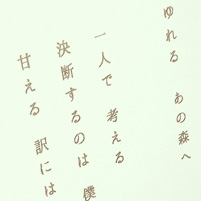 ゆれる　あの森へ
一人で　考える
決断するのは　僕
甘える　訳には